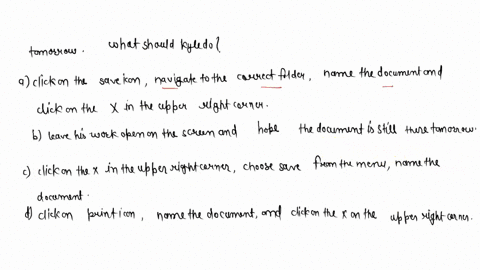 tomorrow. what should kyle do?
a) click on the save icon, navigate to the correct folder, name the document and
click on the X in the upper right corner.
b) leave his work open on the screen and hope the document is still there tomorrow.
c) click on the x in the upper right corner, choose save from the menu, name the
document.
d) click on print icon, name the document, and click on the x on the upper right corner.